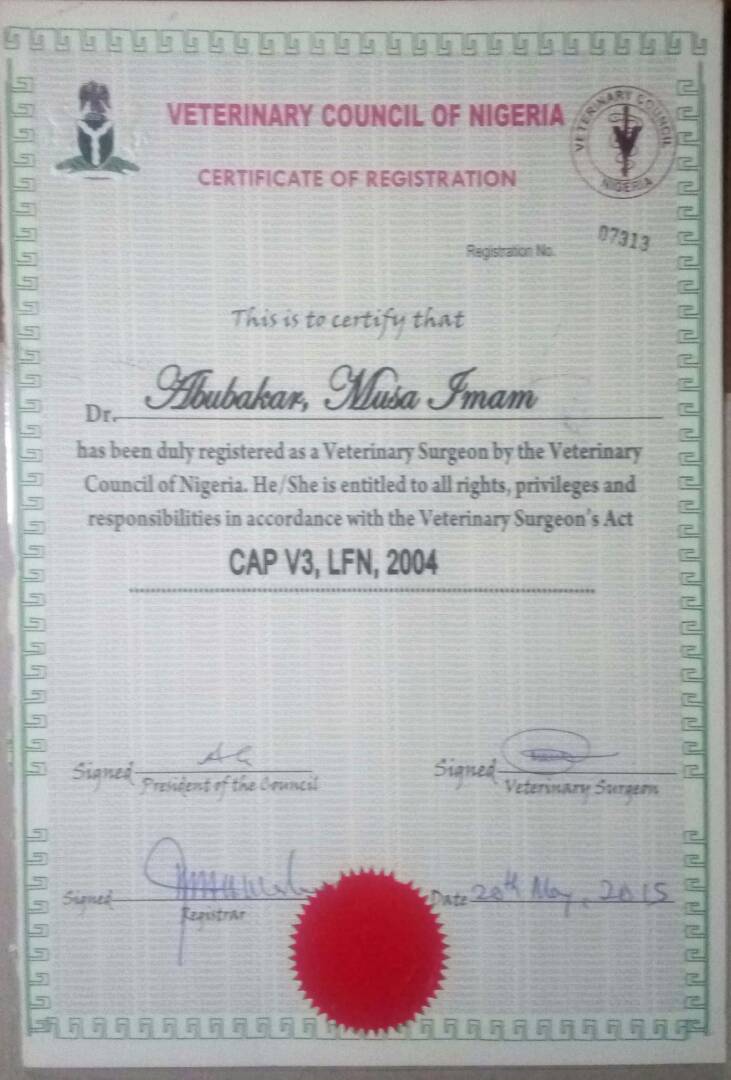 VETERINARY COUNCIL OF NIGERIA
VETERINARY COUNCIL
NIGERIA
CERTIFICATE OF REGISTRATION
Registration No. 07313
This is to certify that
Dr. Abubakar, Musa Imam
has been duly registered as a Veterinary Surgeon by the Veterinary
Council of Nigeria. He/She is entitled to all rights, privileges and
responsibilities in accordance with the Veterinary Surgeon's Act
CAP V3, LFN, 2004
Signed
President of the Council
Signed
Veterinary Surgeon
Signed
Registrar
Date 20th May, 2015